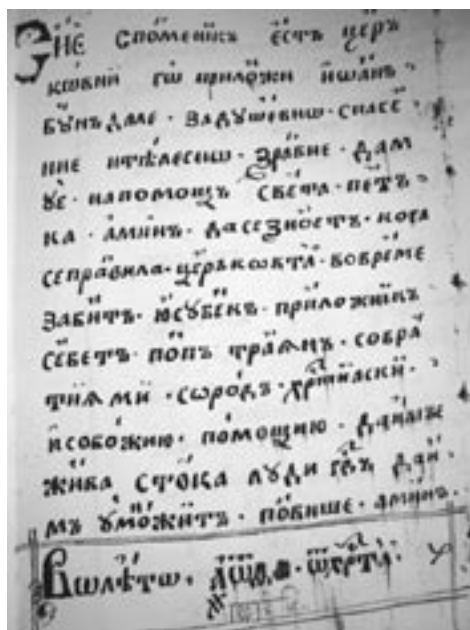 Сиѐ спо́меникъ є҆стъ цр҃ъ
ковнїи гѡ приложи и҆ѡа́нъ
бꙋнъ даде · задꙋшевнѡ · спасе́
ние и тѣлеснѡ · здра́вие · дам
ꙋ є · на помощъ свѣта · пе́тъ
ка · а́минъ · да се знає́тъ · кога
се пра́вила · це́ръковта · во вре́ме
заби́тъ · ю҆сꙋбе́къ · прило́жникъ
по́пъ трая́нъ · со бра́
тиꙗ ми · с рѡдъ · хрⷭ҇тиꙗнски ·
и҆ со бо́жию · по́мощию · да и҆мъ є
жи́ва сто́ка лꙋди гдⷭ҇ъ да и҆
мъ ꙋмо́житъ · по́више · а́минъ ·
Во лѣ́то ·